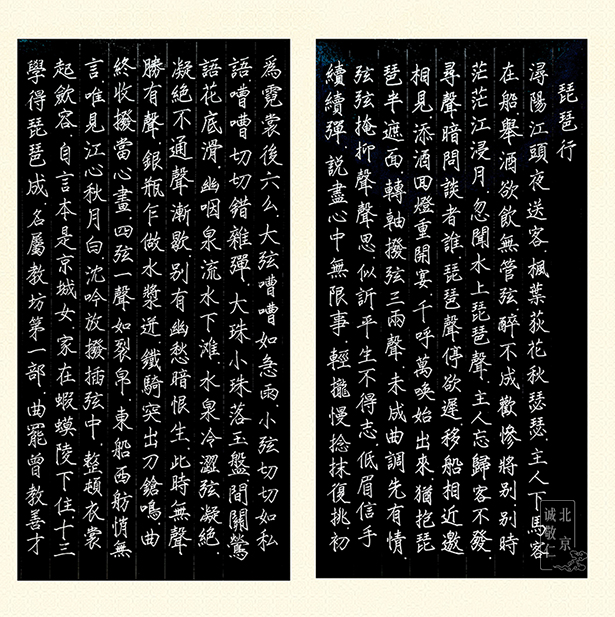 琵琶行
潯陽江頭夜送客.楓葉荻花秋瑟瑟.主人下馬客
在船.舉酒欲飲無管弦.醉不成歡慘將別.別時
茫茫江浸月.忽聞水上琵琶聲.主人忘歸客不發.
尋聲暗問談者誰.琵琶聲停欲遲.移船相近邀
相見.添酒回燈重開宴.千呼萬喚始出來.猶抱琵
琶半遮面.轉軸撥弦三兩聲.未成曲調先有情.
弦弦掩抑聲聲思.似訢平生不得志.低眉信手
續續彈.説盡心中無限事.輕攏慢捻抹復挑.初
為霓裳後六么.大弦嘈嘈如急雨.小弦切切如私
語.嘈嘈切切錯雜彈.大珠小珠落玉盤.間關鶯
語花底滑.幽咽泉流水下滩.水泉冷澀弦凝絕.
凝絕不通聲漸歇.別有幽愁暗恨生.此時無聲
勝有聲.銀瓶乍做水漿迸.鐵騎突出刀鎗鳴.曲
終收撥當心畫.四弦一聲如裂帛.東船西舫悄無
言.唯見江心秋月白.沈吟放撥插弦中.整頓衣裳
起斂容.自言本是京城女.家在蝦蟆陵下住.十三
學得琵琶成.名屬教坊第一部.曲罷曾教善才
北京
诚敬仁